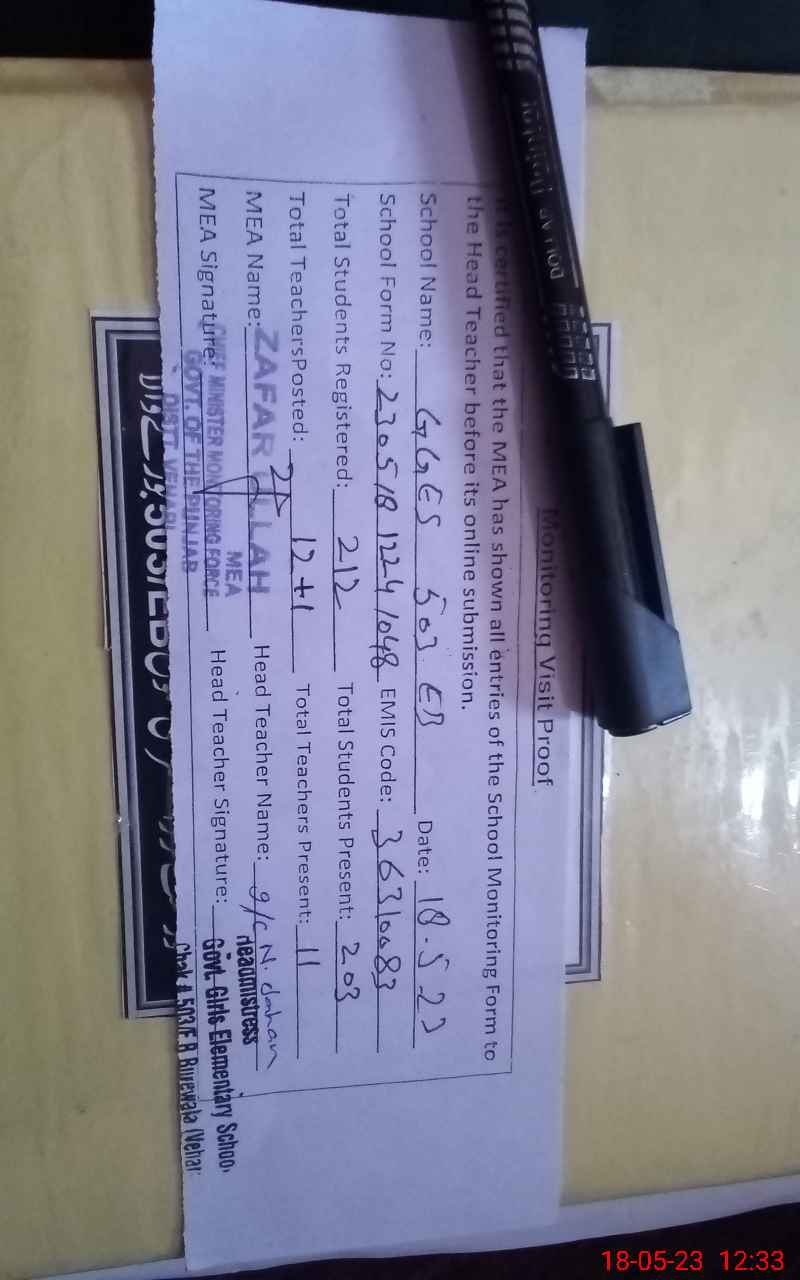 Monitoring Visit Proof
It is certified that the MEA has shown all entries of the School Monitoring Form to
the Head Teacher before its online submission.
School Name: GGES 503. EB Date: 18.5.23
School Form No: 230518 1224 1048 EMIS Code: 36310083
Total Students Registered: 212 Total Students Present: 203
Total TeachersPosted: 12+1 Total Teachers Present: 11
MEA Name: ZAFAR ULLAH Head Teacher Name: g/c N.
MEA
Headmistress
MEA Signature: Head Teacher Signature:
CHIEF MINISTER MONITORING FORCE
GOVT. OF THE PUNJAB
DISTT. VEHARI
Govt. Girls Elementary School
Chak # 503/E.B Burewala (Vehari
503/EB
18-05-23 12:33